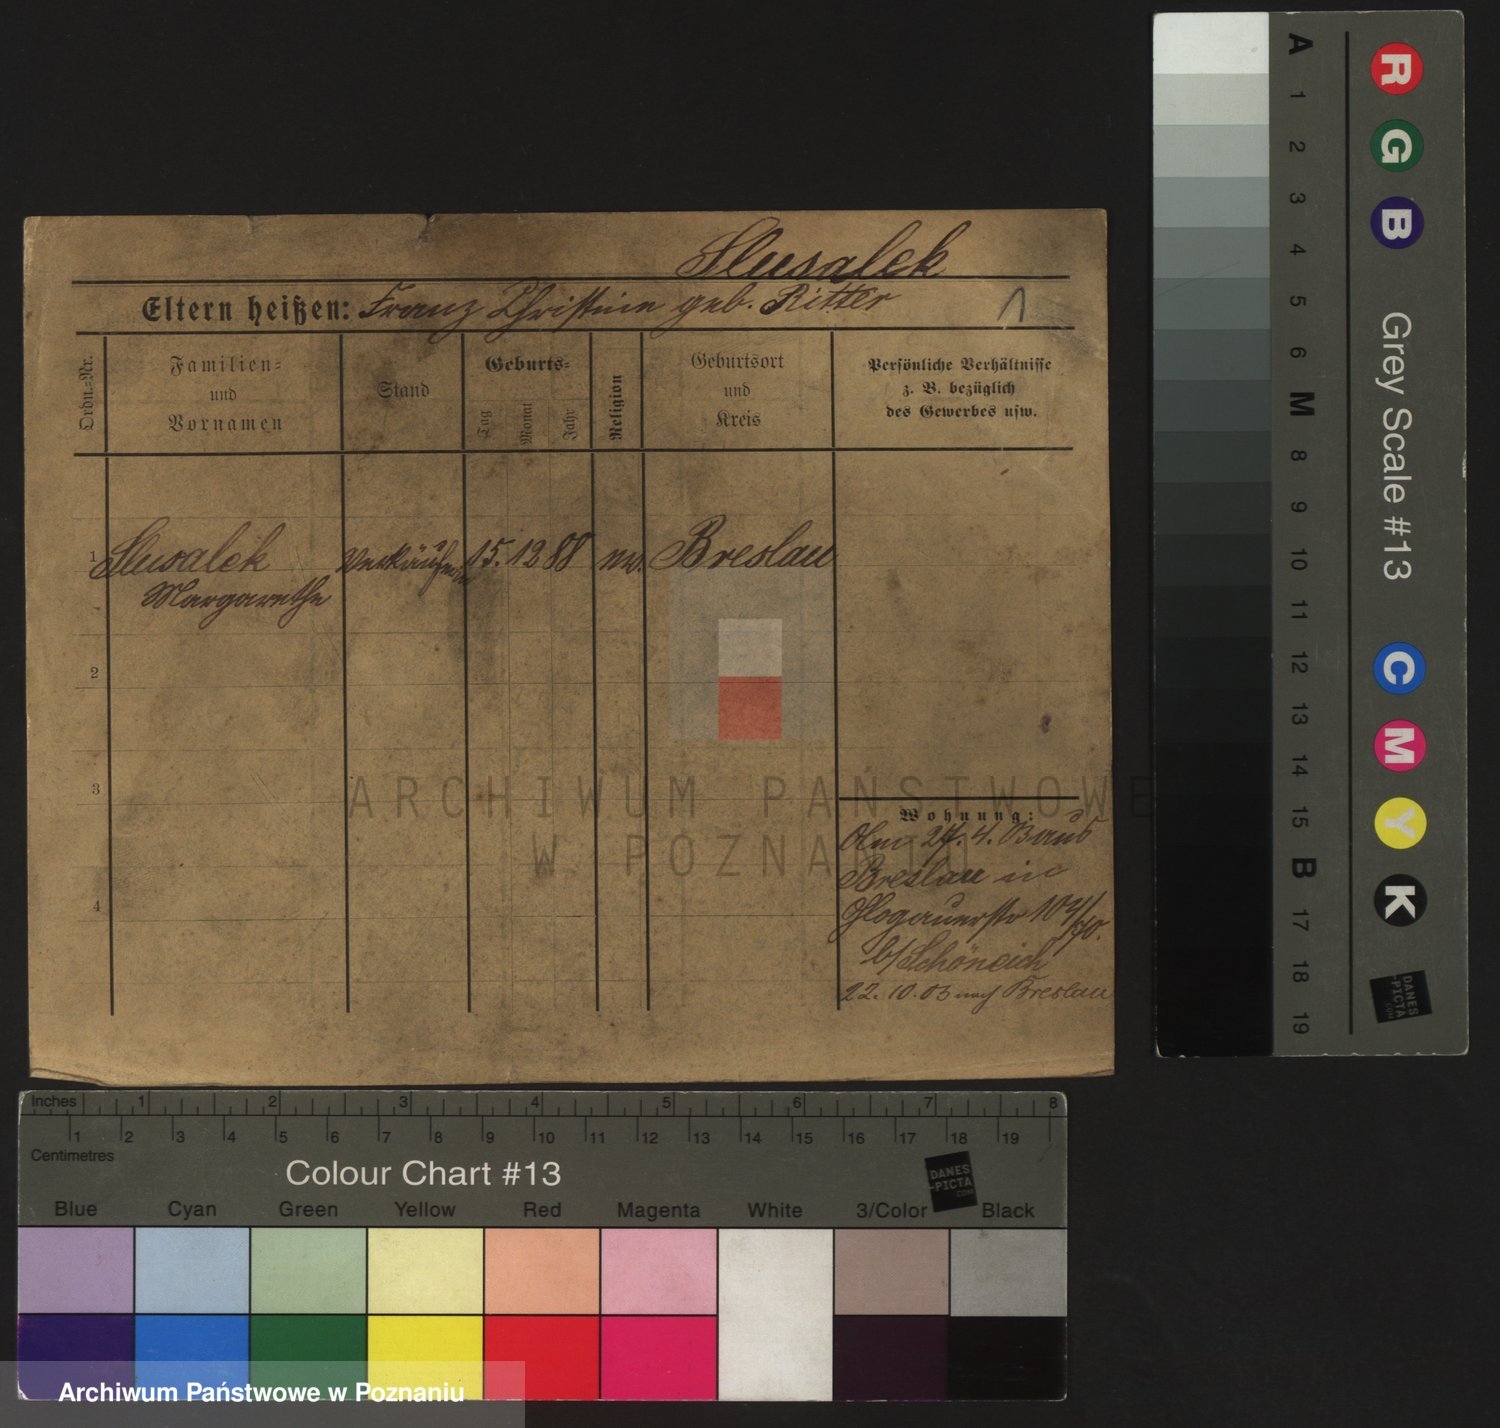 Slusalek
Eltern heißen: Franz Christine geb. Ritter
1
Ordn.-Nr.
Familien-
und
Vornamen
Stand
Geburts-
Tag
Monat
Jahr
Religion
Geburtsort
und
Kreis
Persönliche Verhältnisse
z. B. bezüglich
des Gewerbes usw.
1 Slusalek Verkäuferin 15. 12 88 ev. Breslau
Margarethe
2
3
4
Wohnung:
27. 4. 03 aus
Breslau in
Glogauerstr 104/
b/ Schöneich
22. 10. 03 nach Breslau
ARCHIWUM PAŃSTWOWE
W POZNANIU
A 1 2 3 4 5 6 M 8 9 10 11 12 13 14 15 B 17 18 19
R G B
Grey Scale #13
C M Y K
DANES
-PICTA
.COM
Inches 1 2 3 4 5 6 7 8
1 2 3 4 5 6 7 8 9 10 11 12 13 14 15 16 17 18 19
Centimetres
Colour Chart #13
DANES
-PICTA
.COM
Blue Cyan Green Yellow Red Magenta White 3/Color Black
Archiwum Państwowe w Poznaniu